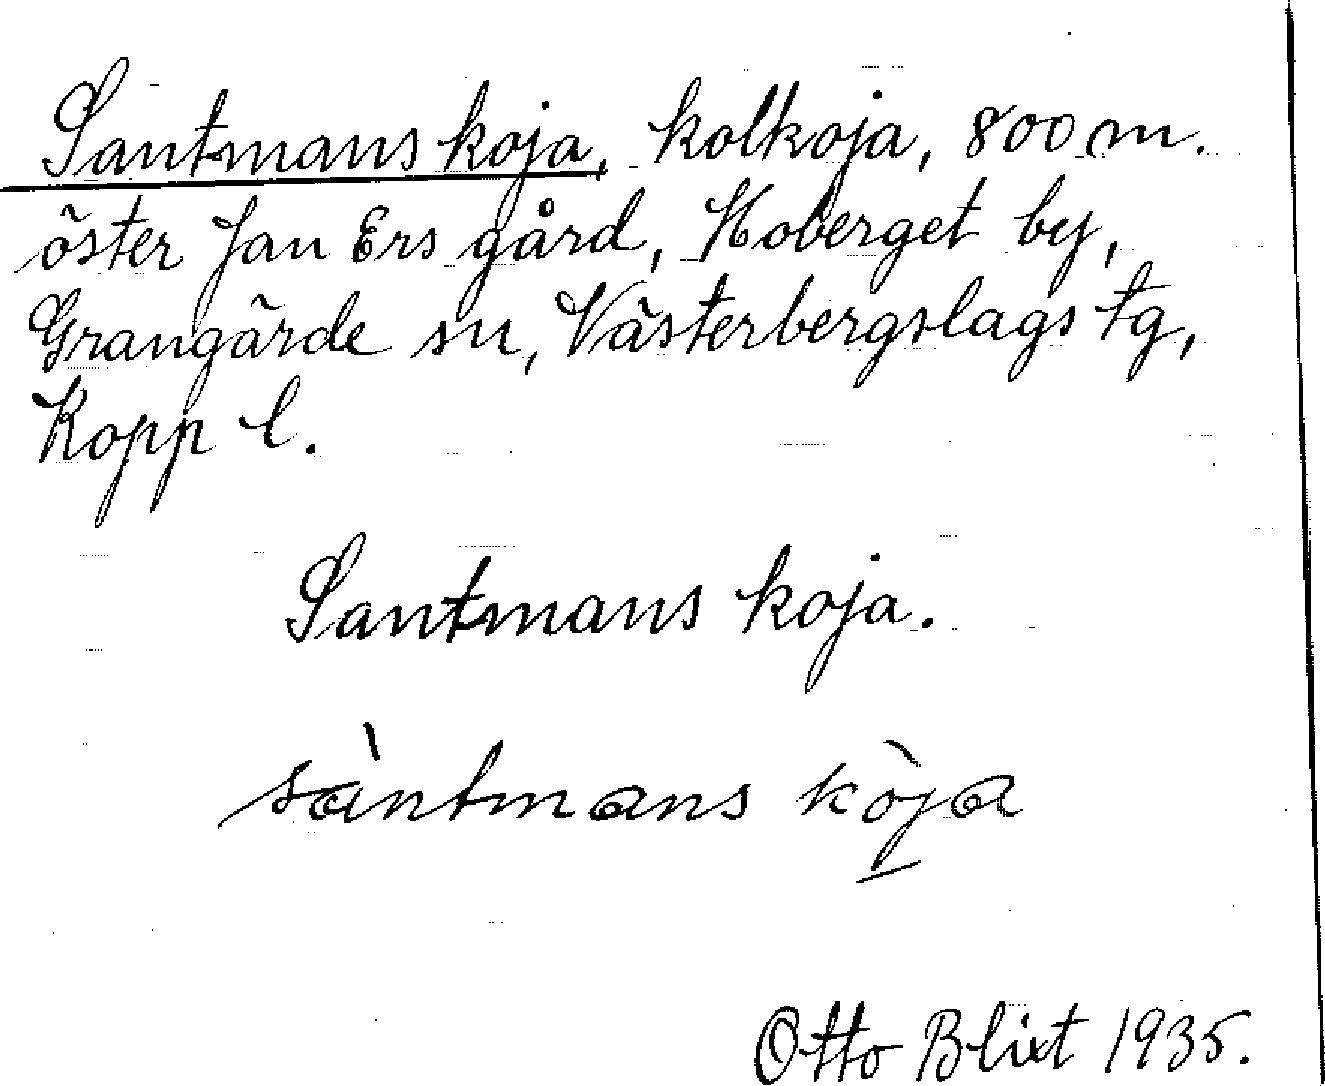 Santmans koja, kolkoja, 800 m.
öster Jan Ers gård, Hoberget by,
Grangärde sn, Västerbergslags tg,
Kopp l.
Santmans koja.
sàntmans kòja
Otto Blixt 1935.